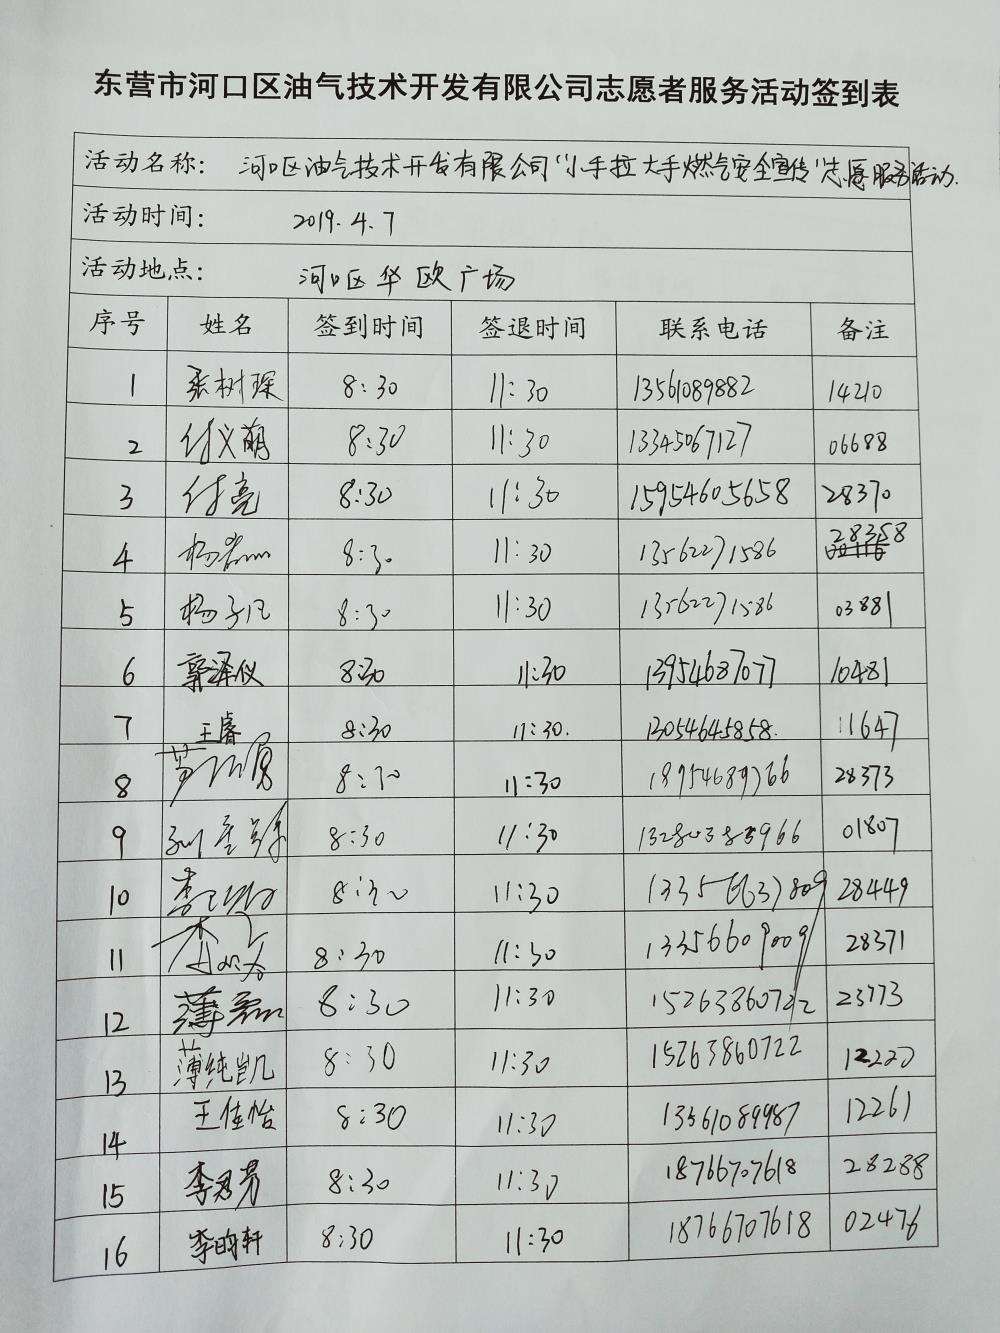 东营市河口区油气技术开发有限公司志愿者服务活动签到表
活动名称: 河口区油气技术开发有限公司“小手拉大手燃气安全宣传”志愿服务活动.
活动时间: 2019.4.7
活动地点: 河口区华欧广场
序号 姓名 签到时间 签退时间 联系电话 备注
1 张树琛 8:30 11:30 13561089882 14210
2 付义萌 8:30 11:30 13345067127 06688
3 付亮 8:30 11:30 15954605658 28370
4 8:30 11:30 13562271586 28358
5 杨子凡 8:30 11:30 13562271586 03881
6 郭泽仪 8:30 11:30 13954687077 10481
7 王睿 8:30 11:30. 13054645858. 11647
8 8:30 11:30 28373
9 8:30 11:30 01807
10 8:30 11:30 28449
11 8:30 11:30 13356609009 28371
12 薄磊 8:30 11:30 15263860722 23773
13 薄纯凯 8:30 11:30 15263860722 12220
14 王佳怡 8:30 11:30 13561089987 12261
15 李秀芳 8:30 11:30 18766707618 28288
16 李昀轩 8:30 11:30 18766707618 02476